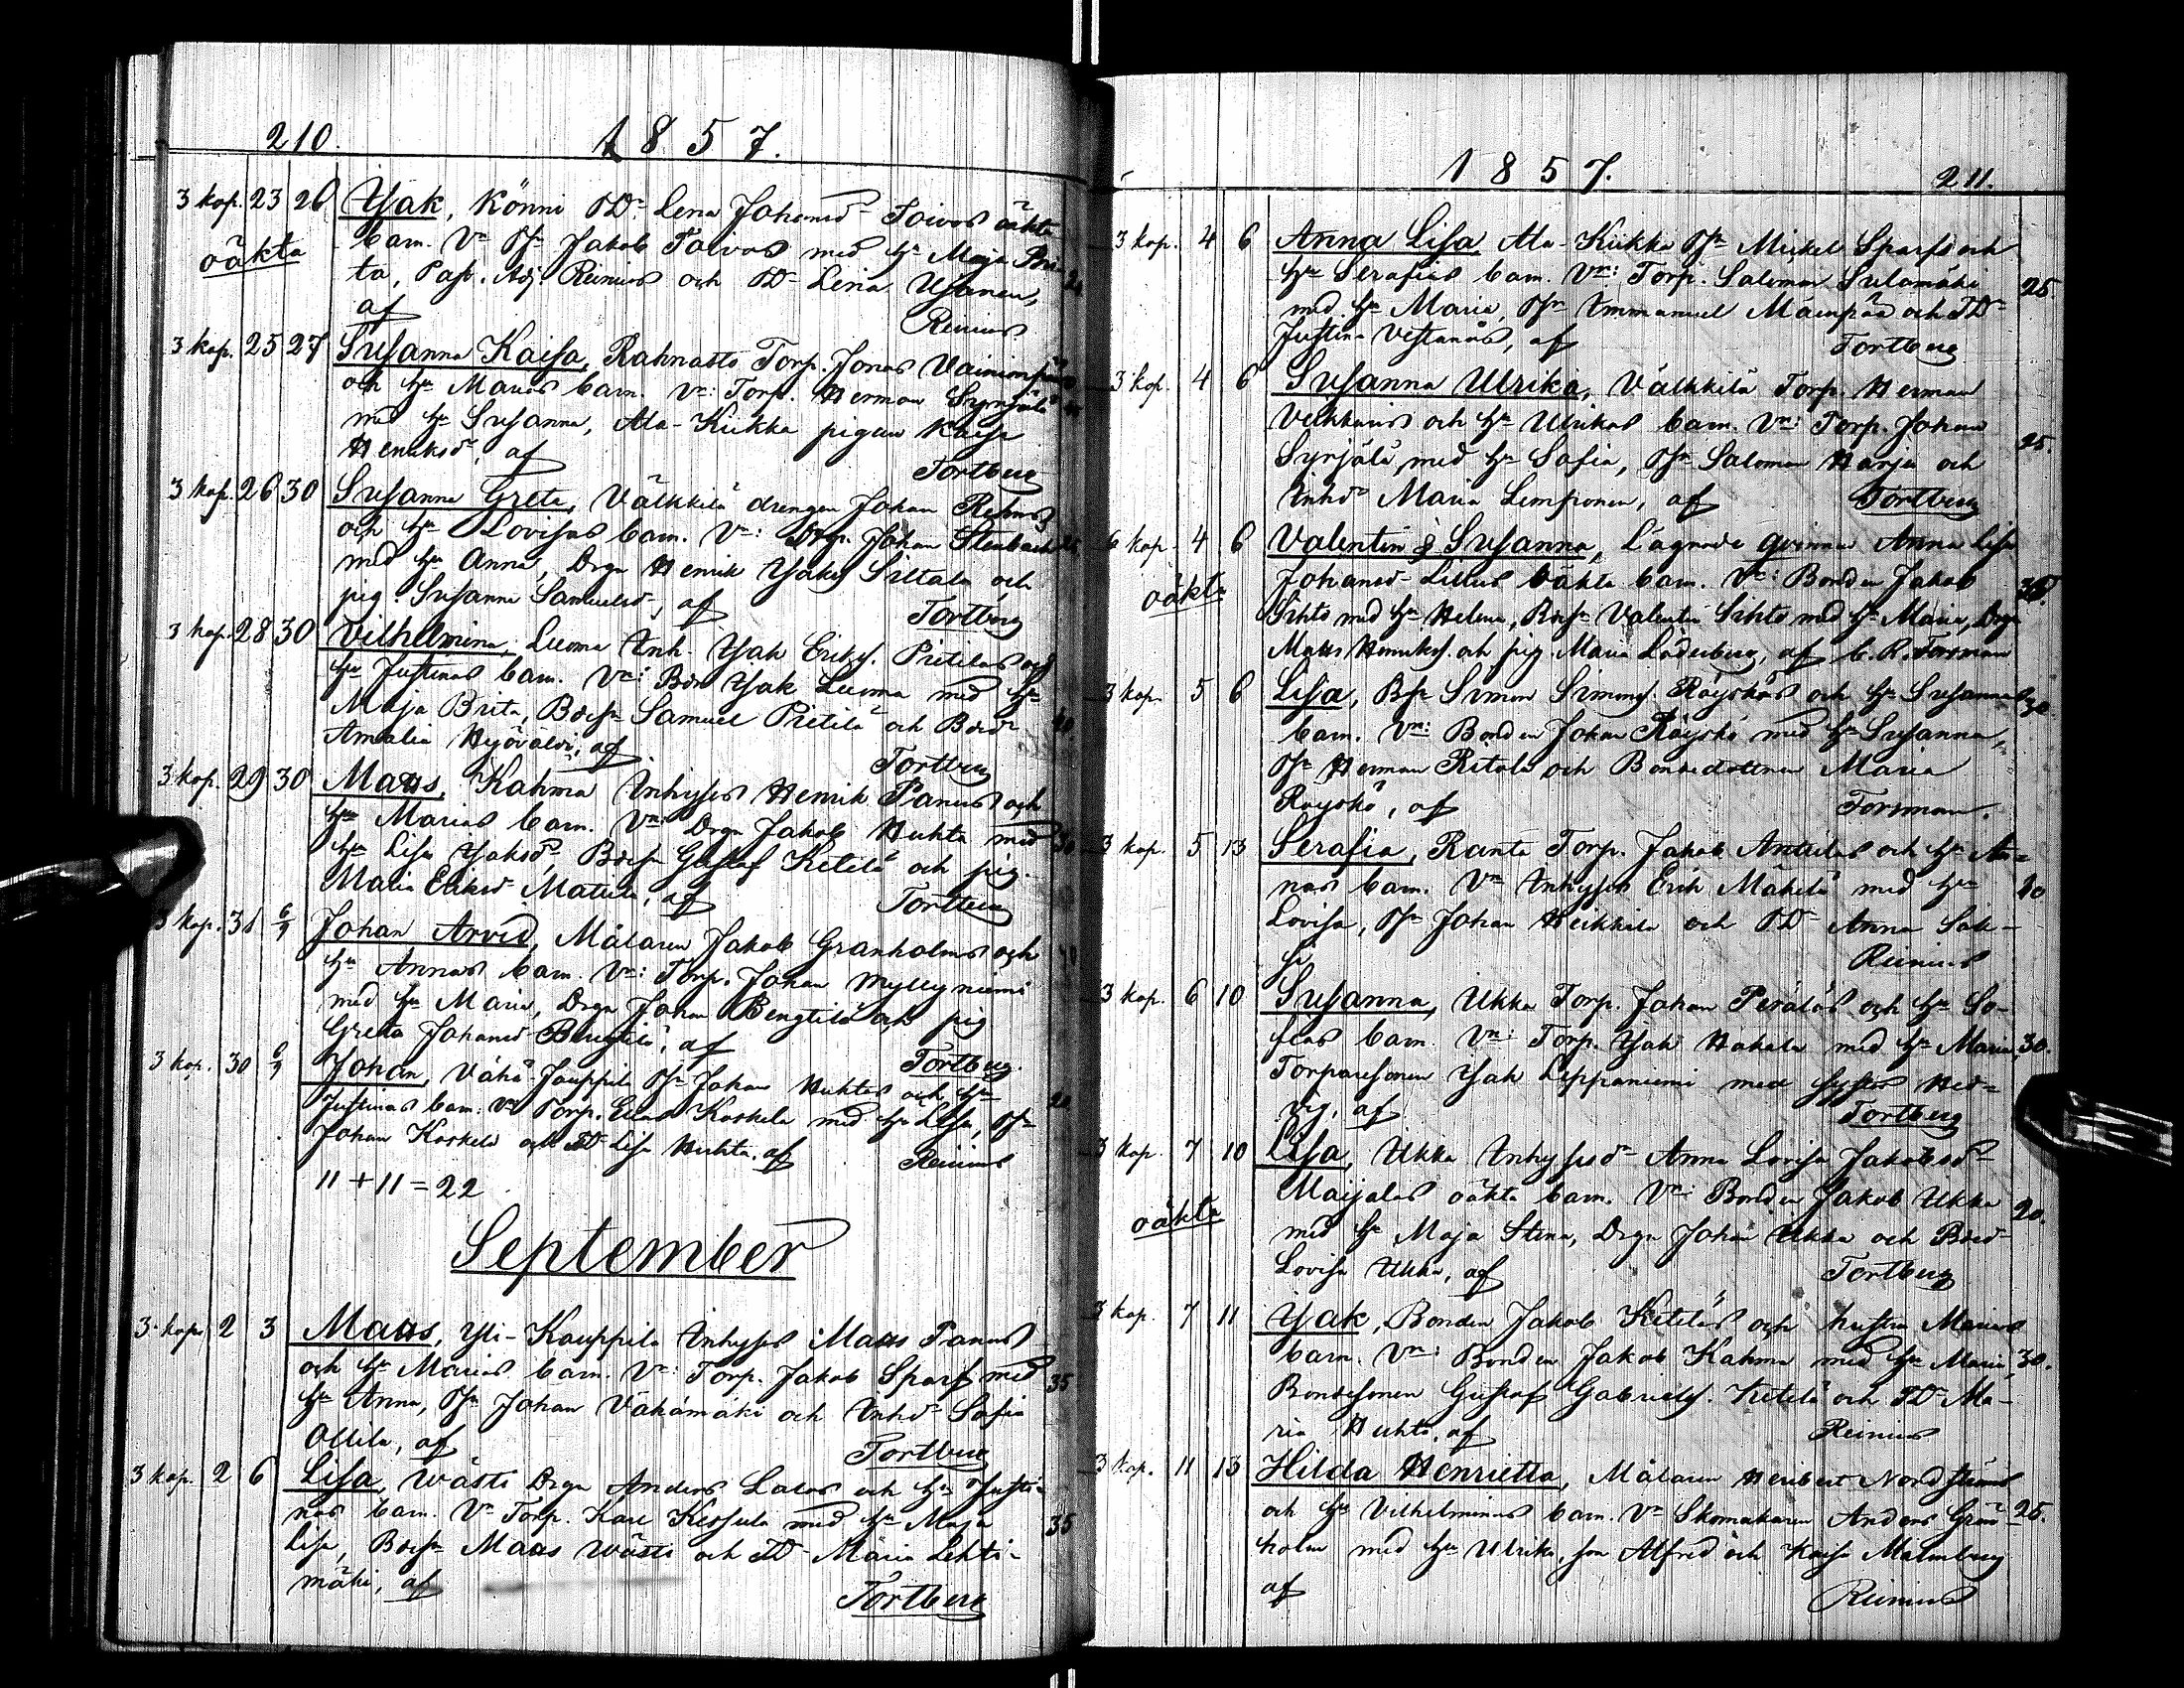 210. 1857.
3 kop. 23 26 Isak, Könni TDr. Lena Johansdr Toivos oäkta
oäkta barn. Vn: Tsn Jakob Toivos med hu Maja Bri-
ta, Past. Adj. Reinius och TDr Lena Isanen,
af Reinius
3 kop. 25 27 Susanna Kaisa, Rahnasto Torp. Jonas Vainionpää
och hu Marias barn. Vn: Torp. Herman Syrjälä
med hu Susanna, Ala-Kiikka pigan Kaisa
Henriksdr, af Tortberg
3 kop. 26 30 Susanna Greta, Välkkilä drengen Johan
och hu Lovisas barn. Vn: Torp. Johan Stenback
med hu Anna, Drgn Henrik Isaks. Siltala och
pig. Susanna Samuelsdr, af Tortberg
3 kop. 28 30 Vilhelmina, Luoma Inh. Isak Eriks. Pietiläs och
hu Justinas barn. Vn: Bdn Isak Luoma med hu
Maja Brita, Bdesn Samuel Pietilä och Bdedr
Amalia af Tortberg
3 kop. 29 30 Matts, Kahma Inhyses Henrik Panus och
hu Marias barn. Vn: Drgn Jakob Huhta med
hu Lisa Isaksdr, Bdesn Gustaf Ketelä och pig.
Maria Eriksdr Matila, af Tortberg
3 kop. 31 6/9 Johan Arvid, Målaren Jakob Granholms och
hu Annas barn. Vn: Torp. Johan Myllyniemi
med hu Maria, Drgn Johan Bengtilä och pig
Greta Johansdr Bengtilä, af Tortberg.
3 kop. 30 6/9 Johan, Vähä-Jauppila Tsn Johan Huhtas och hu
Justinas barn. Vn: Torp. Elias Koskela med hu Lisa, Tsn
Johan Koskela och TDr Lisa Huhta, af Reinius
11 + 11 = 22
September
3 kop. 2 3 Matts, Yli-Kauppila Inhyses Matts Panus
och hu Marias barn. Vn: Torp. Jakob Sparf med 35
hu Anna, Tsn Johan Vähämäki och Inhdr Sofia
Ollila, af Tortberg
3 kop. 2 6 Lisa, Wästi Drgn Anders Lalos och hu Justi-
nas barn. Vn Torp. Karl Kessula med hu Maja 35
Lisa, Bdesn Matts Wästi och TDr Maria Lehti-
mäki, af Tortberg
1857. 211.
3 kop. 4 6 Anna Lisa, Ala-Kiikka Tsn Mickel Sparfs och
hu Serafias barn. Vn: Torp. Salomon Sulamäki 25
med hu Maria, Tsn Immanuel Mäenpää och TDr
Justina Vestanås, af Tortberg
3 kop. 4 6 Susanna Ulrika, Välkkilä Torp. Herman
och hu Ulrikas barn. Vn: Torp. Johan 25.
Syrjälä med hu Sofia, Tsn Salomon Harju och
Inhdr Maria Lemponen, af Tortberg
6 kop. 4 6 Valentin & Susanna, Lägrade qvinnan Anna Lisa
oäkta Johansdr Lillus oäkta barn. Vn: Bonden Jakob
Sihto med hu Helena, Bdesn Valentin Sihto med hu Maria, Drgn
Matts Henriks. och pig. Maria Läderberg, af C. R. Forsman
3 kop. 5 6 Lisa, Bsn Simon Simons. Röyskös och hu Susannas 30
barn. Vn: Bonden Johan Röyskö med hu Susanna,
Tsn Herman Ritola och Bondedottren Maria
Röyskö, af Forsman.
3 kop. 5 13 Serafia, Ranta Torp. Jakob Anttilas och hu An-
nas barn. Vn Inhyses Erik Mäkelä med hu
Lovisa, Tsn Johan Heikkilä och TDr Anna Säk-
Reinius
3 kop. 6 10 Susanna, Ukko Torp. Johan Peräläs och hu So-
fias barn. Vn: Torp. Isak Hakala med hu Maria, 30.
Torparesonen Isak Leppäniemi med syster Hed-
vig, af Tortberg
3 kop. 7 10 Lisa, Ukko Inhysesdr Anna Lovisa Jakobsdr
oäkta Maijalas oäkta barn. Vn: Bonden Jakob Ukko 20.
med hu Maja Stina, Drgn Johan Ukko och Bdedr
Lovisa Ukko, af Tortberg
3 kop. 7 11 Isak, Bonden Jakob Keteläs och hustru Marias
barn. Vn: Bonden Jakob Kahma med hu Maria, 30.
Bondesonen Gustaf Gabriels. Ketelä och TDr Ma-
ria Huhta, af Reinius
3 kop. 11 13 Hilda Henrietta, Målaren Heribert Nordströms
och hu Vilhelminas barn. Vn Skomakaren Anders Gran- 25.
holm med hu Ulrika, son Alfred och Kaisa Malmberg
af Reinius